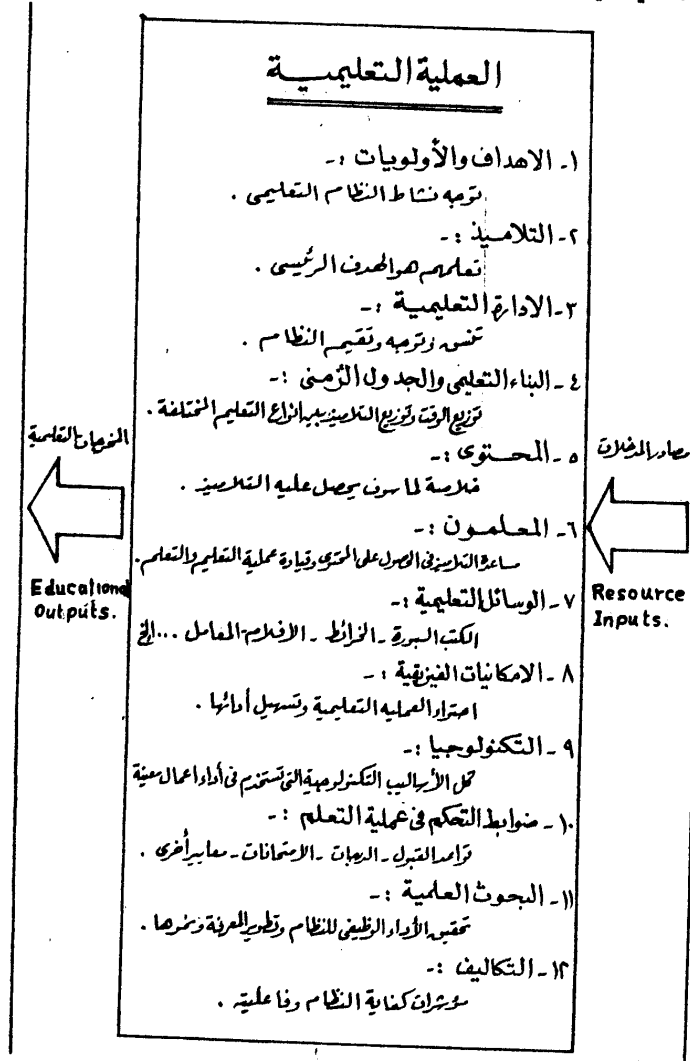 العملية التعليميـــة
١- الاهداف والأولويات :-
توجه نشاط النظام التعليمى .
٢- التلاميذ :-
تعلمهم هو الهدف الرئيسى .
٣- الادارة التعليمية :-
تنسق وتوجه وتقيم النظام .
٤- البناء التعليمى والجدول الزمنى :-
توزيع الوقت وتوزيع التلاميذ بين انواع التعليم المختلفة .
٥- المحتوى :-
خلاصة لما سوف يحصل عليه التلاميذ .
٦- المعلمون :-
مساعدة التلاميذ فى الحصول على المحتوى وقيادة عملية التعليم والتعلم .
٧- الوسائل التعليمية :-
الكتب السبورة - الخرائط - الافلام - المعامل ... الخ
٨- الامكانيات الفيزيقية :-
احتواء العمليه التعليمية وتسهيل أدائها .
٩- التكنولوجيا :-
كل الأساليب التكنولوجية التى تستخدم فى أداء اعمال معينة
١٠- ضوابط التحكم فى عملية التعلم :-
قواعد القبول - الدرجات - الامتحانات - معايير أخرى .
١١- البحوث العلمية :-
تحقيق الأداء الوظيفى للنظام وتطوير المعرفة ونموها .
١٢- التكاليف :-
مؤشرات كفاية النظام وفاعليته .
مصادر المدخلات
Resource
Inputs.
المخرجات التعليمية
Educational
Outputs.